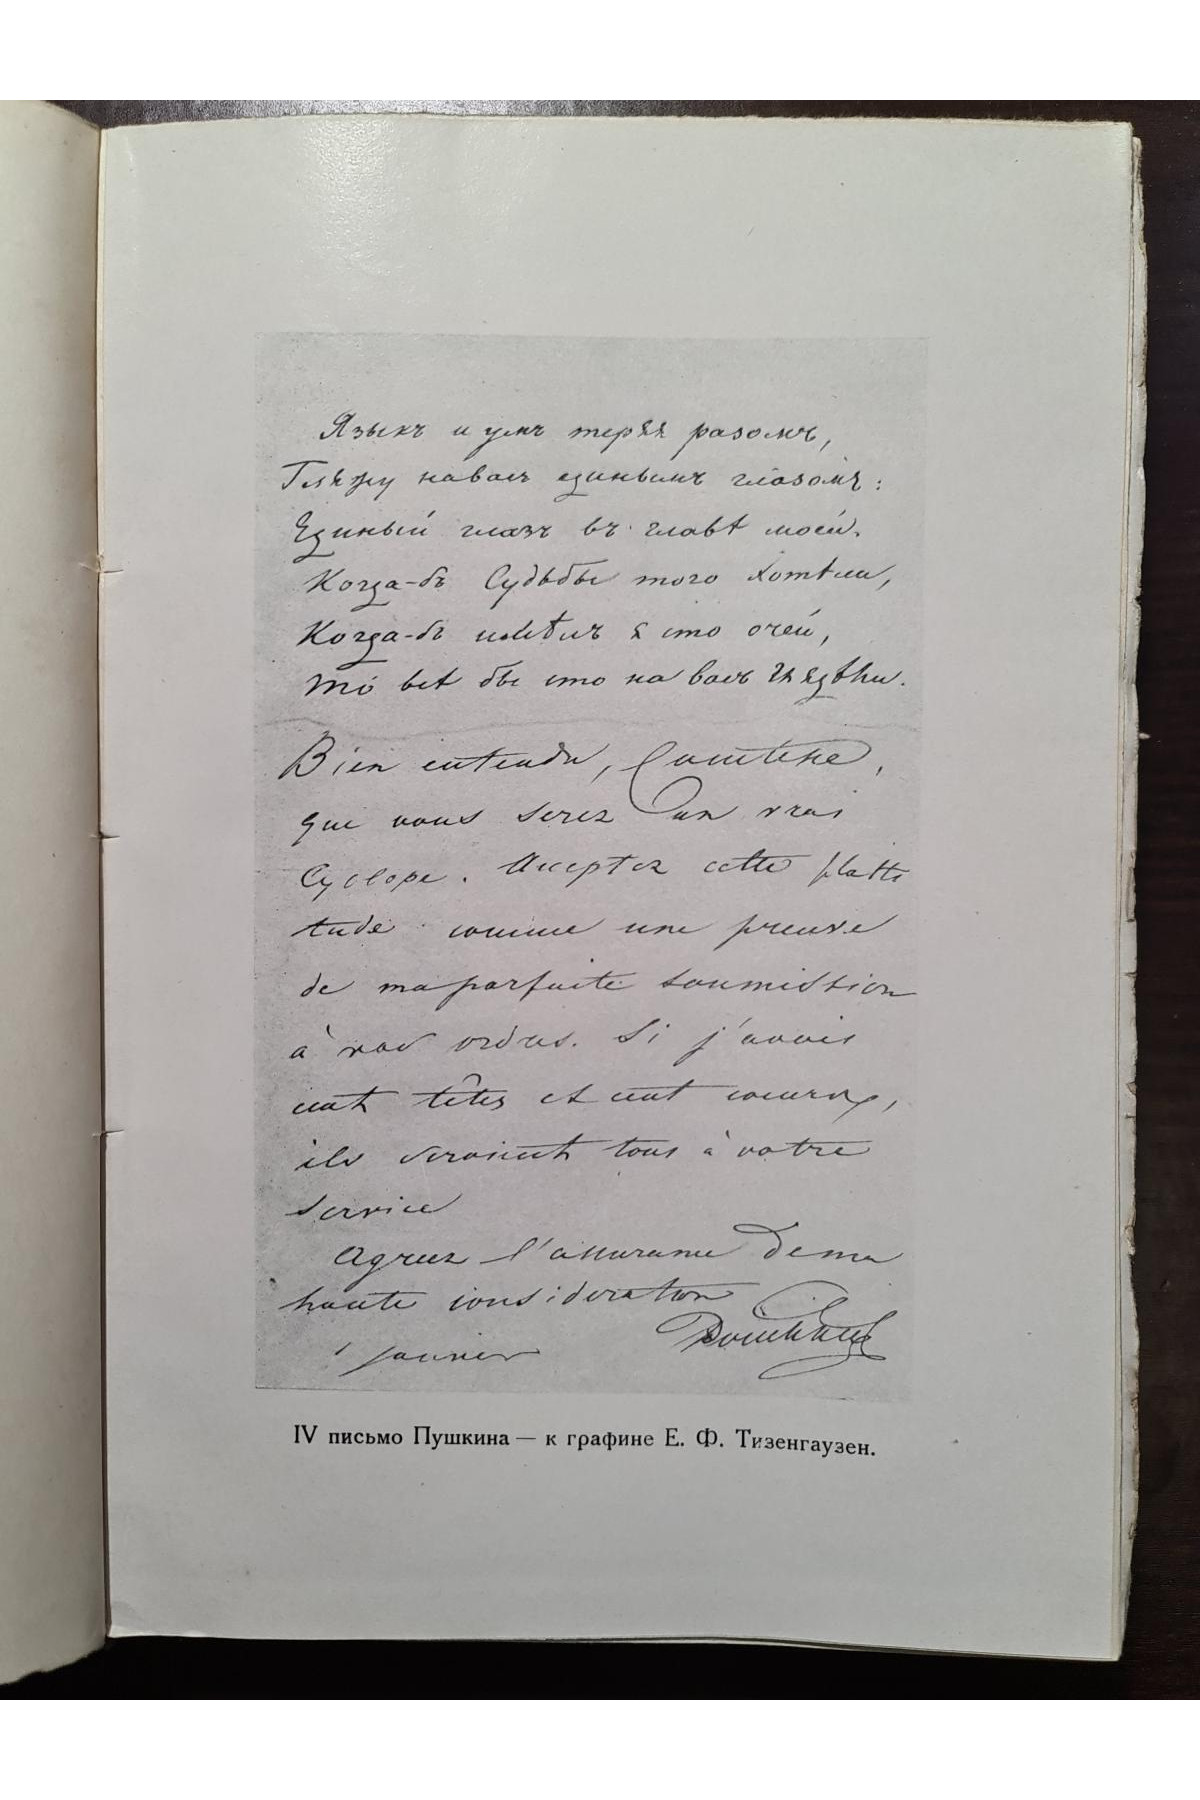 Языкъ и умъ теряя разомъ,
Гляжу на васъ единымъ глазомъ:
Единый глазъ въ главѣ моей.
Когда-бъ Судьбы того хотѣли,
Когда-бъ имѣлъ я сто очей,
То всѣ бы сто на васъ глядѣли.
Bien entendu, Comtesse,
que vous serez un vrai
Cyclope. Acceptez cette platti
tude comme une preuve
de ma parfaite soumission
à vos ordres. Si j'avais
cent têtes et cent coeurs,
ils seraient tous à votre
service
Agréez l'assurance de ma
haute consideration
Pouchkine
1 janvier
IV письмо Пушкина — к графине Е. Ф. Тизенгаузен.